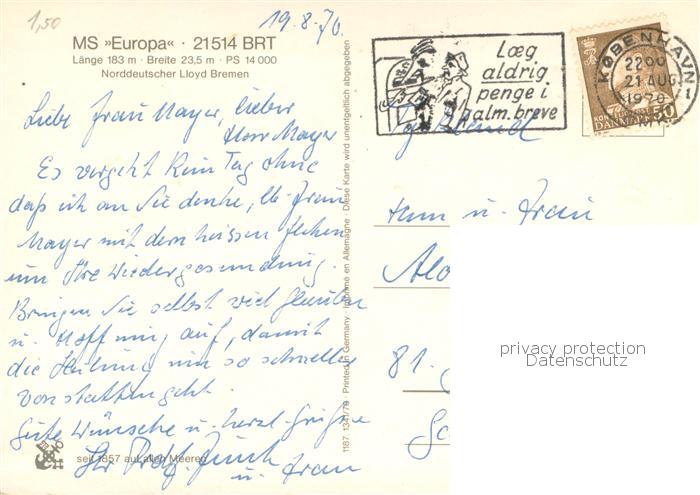 1,50
19.8.70.
MS »Europa« · 21514 BRT
Länge 183 m · Breite 23,5 m · PS 14 000
Norddeutscher Lloyd Bremen
Liebe Frau Mayer, lieber
Herr Mayer
Es vergeht kein Tag ohne
daß ich an Sie denke, lb. Frau
Mayer mit dem heissen Flehen
um Ihre Wiedergesundung.
Bringen Sie selbst viel Glauben
u. Hoffnung auf, damit
die Heilung um so schneller
vonstatten geht.
Gute Wünsche u. herzl. Grüsse
Ihr
u. Frau
seit 1857 auf allen Meeren
1187 1341/79 · Printed in Germany · Imprimé en Allemagne · Diese Karte wird unentgeltlich abgegeben
Læg
aldrig
penge i
alm. breve
KØBENHAVN
2200
21 AUG.
1970
DANMARK 50
Herrn u. Frau
Alo
81
privacy protection
Datenschutz